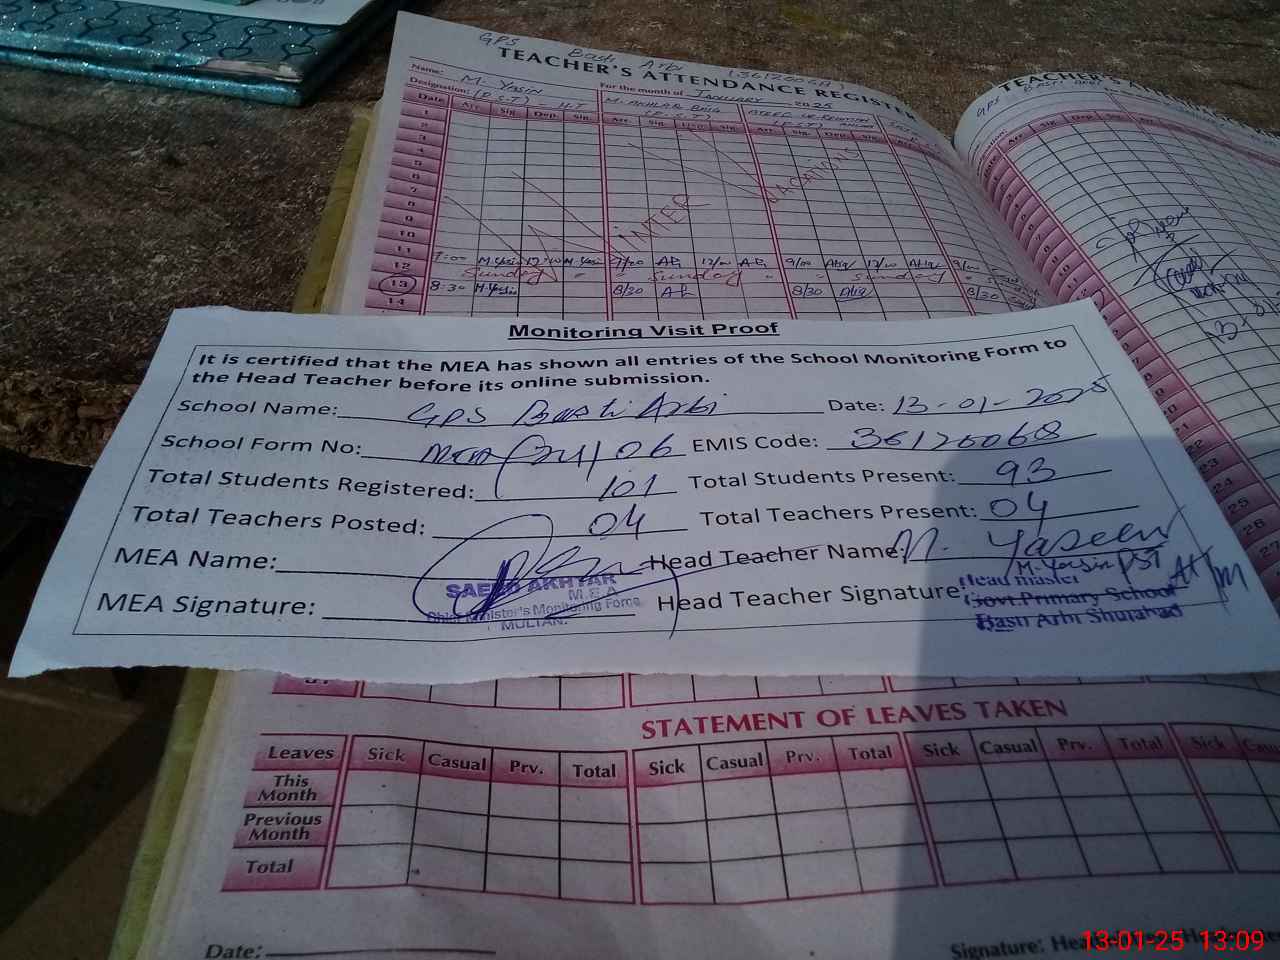 GPS Basti Arbi
TEACHER'S ATTENDANCE REGISTER
Name: M. Yasin For the month of January 2025
Designation: (P.S.T) - H.T
Date Arr. Sig. Dep. Sig. Arr. Sig. Dep. Sig. Arr. Sig. Dep. Sig.
1
3
4
5
6
7
8
9
10
WINTER VACATIONS
11 9:00 M.Yasin 12:00 M.Yasin 9/00 12/00 9/00 Atiq 12/00 Atiq 9/00
12 Sunday " " Sunday " " Sunday "
13 8:30 M.Yasin 8/30 8/30 Atiq 8/30
14
Monitoring Visit Proof
It is certified that the MEA has shown all entries of the School Monitoring Form to
the Head Teacher before its online submission.
School Name: GPS Basti Arbi Date: 13-01-2025
School Form No: MEA (24) 06 EMIS Code: 36120068
Total Students Registered: 101 Total Students Present: 93
Total Teachers Posted: 04 Total Teachers Present: 04
MEA Name: Head Teacher Name: M. Yaseen
M.Yasin PST
MEA Signature: Head Teacher Signature:
SAEED AKHTAR
M.E.A
Chief Minister's Monitoring Force
MULTAN.
Head master
Govt.Primary School
Basti Arbi Shujabad
21
22
23
24
25
26
27
STATEMENT OF LEAVES TAKEN
Leaves Sick Casual Prv. Total Sick Casual Prv. Total Sick Casual Prv. Total Sick
This Month
Previous Month
Total
Date:
Signature:
13-01-25 13:09